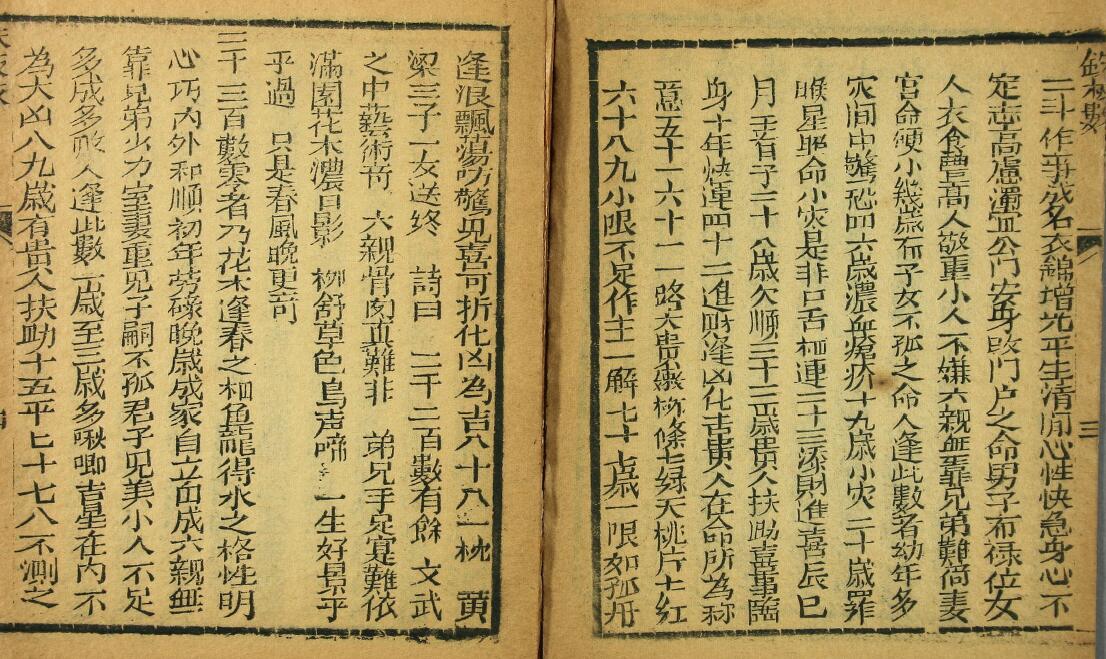 三
二斗作事成名衣錦增光平生清閒心性快急身心不
定志高慮濁宜公門安身改門户之命男子布禄位女
人衣食豐高人敬重小人不嫌六親無靠兄弟難倚妻
宮命硬小幾歲有子女不孤之命人逢此數者幼年多
灾間中驚恐四六歲濃血瘡疥十九歲小灾二十歲羅
睺星照命小灾是非口舌相連二十三添財進喜辰巳
月壬首子二十八歲欠順三十二歲貴人扶助喜事臨
身十年快運四十二進財逢凶化吉貴人在命所為称
意五十一六十一路大貴柳條七绿天桃片片红
六十八九小限不足作主一解七十七歲一限如孤舟
逢浪飄蕩防驚見喜可折化凶為吉八十八一枕 黄
梁三子一女送終 詩曰 二千二百數有餘 文武
之中藝術奇 六親骨肉真難非 弟兄手足寔難依
滿園花木濃日影 柳舒草色鳥声啼 一生好景乎
乎過 只是春風晚更奇
二千三百數零者乃花木逢春之相魚龍得水之格性明
心巧内外和順初年劳碌晚歲成家自立自成六親無
靠兄弟少力室妻重見子嗣不孤君子見美小人不足
多成多敗人逢此數一歲至三歲多啾唧吉星在内不
為大凶八九歲有贵人扶助十五平匕十七八不測之